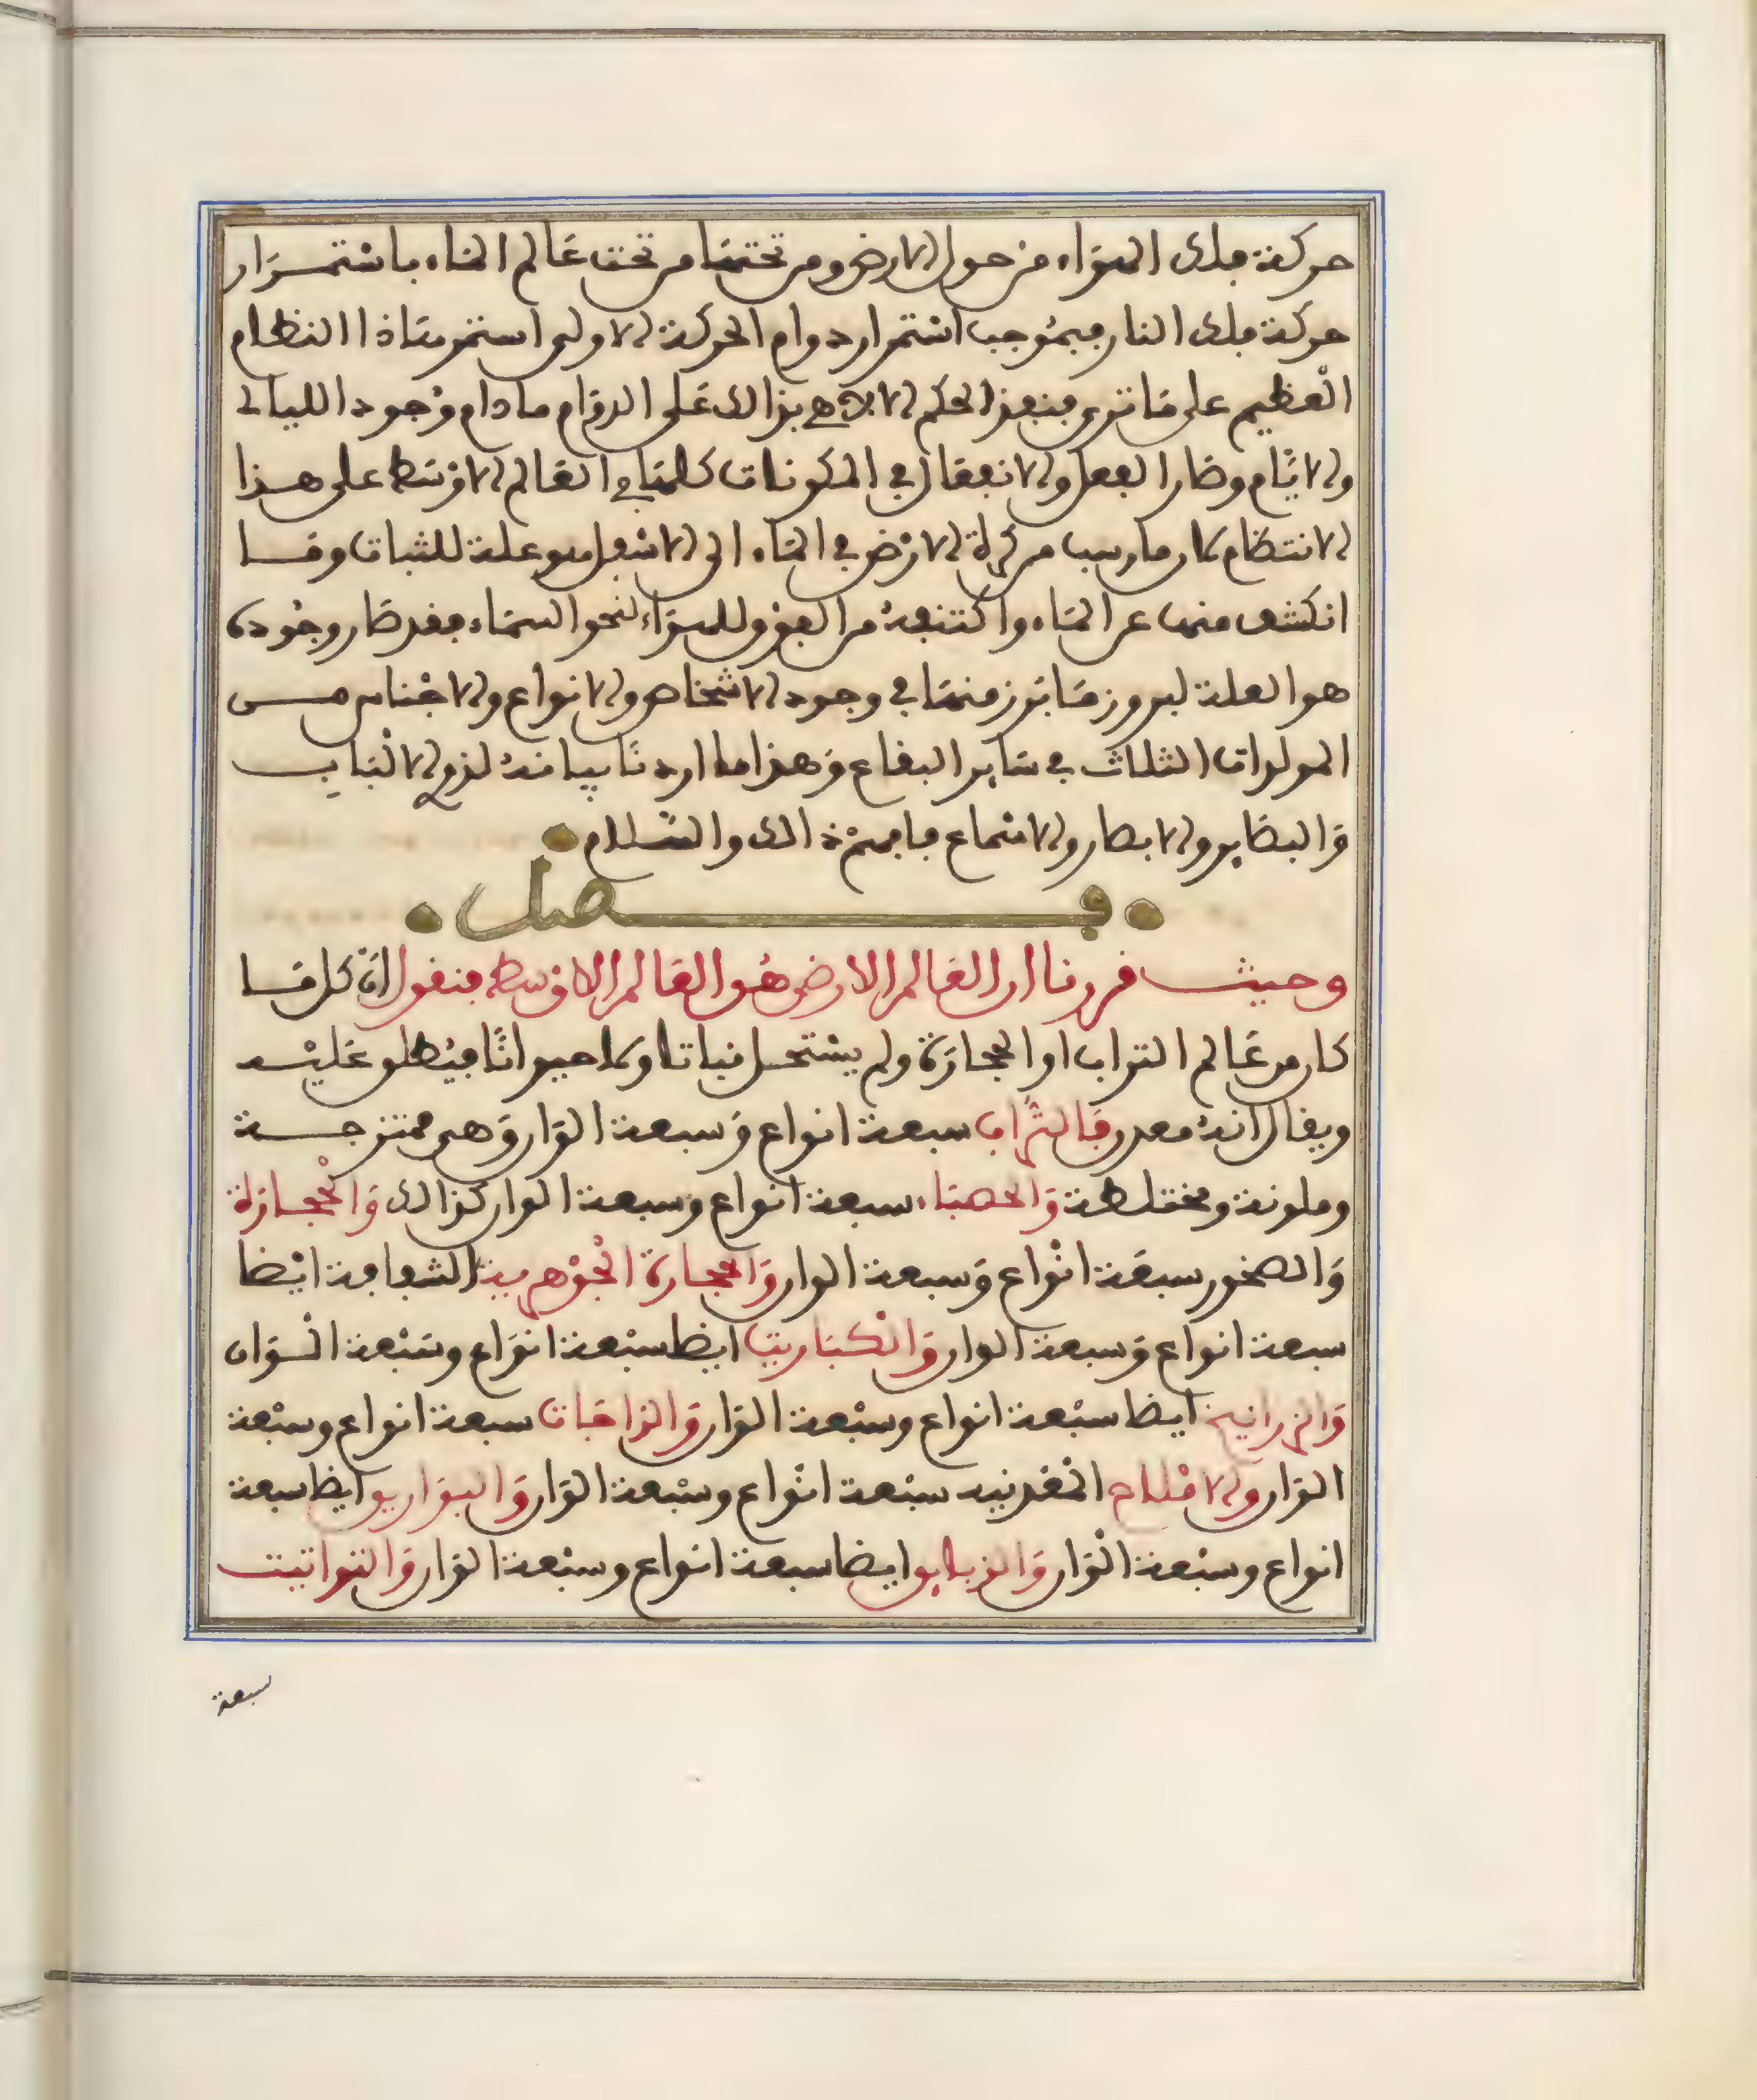 حركة فلك الهواء من حول الارض ومن تحتها من تحت عالم الماء باستمرار
حركة فلك النار فبموجب استمرار دوام الحركة الاولى استمر هاذا النظام
العظيم على ما ترى فنفذ الحكم الالاهي بذالك على الدوام ما دام وجود الليالي
والايام وصار الفعل والانفعال في المكونات كلها في العالم الاوسط على هذا
الانتظام كان ما رسب من كرة الارض في الماء الى الاسفل هو علة للثبات وما
انكشف منها عن الماء واكتنفه من الفوق للهواء نحو السماء فقد صار وجوده
هو العلة لبروز ما برز منها في وجود الاشخاص والانواع والاجناس من
المولدات الثلاث في ساير البقاع وهذا ما اردنا بيانه لذوي الالباب
والبصاير والابصار والاسماع فافهم ذالك والسلام
فصل
وحيث قررنا ان العالم الارض هو العالم الاوسط فنقول ان كل ما
كان من عالم التراب او الحجارة ولم يستحل نباتا ولا حيوانا فيطلق عليه
ويقال انه معدن فالتراب سبعة انواع وسبعة الوان وهي ممتزجة
وملونة ومختلطة والحصباء سبعة انواع وسبعة الوان كذالك والحجارة
والصخور سبعة انواع وسبعة الوان والحجارة الجوهرية الشفافة ايضا
سبعة انواع وسبعة الوان والكباريت ايضا سبعة انواع وسبعة الوان
والزرانيخ ايضا سبعة انواع وسبعة الوان والزاجات سبعة انواع وسبعة
الوان والاملاح المعدنيه سبعة انواع وسبعة الوان والبوارق ايضا سبعة
انواع وسبعة الوان والزيابق ايضا سبعة انواع وسبعة الوان والتواتيت
سبعة